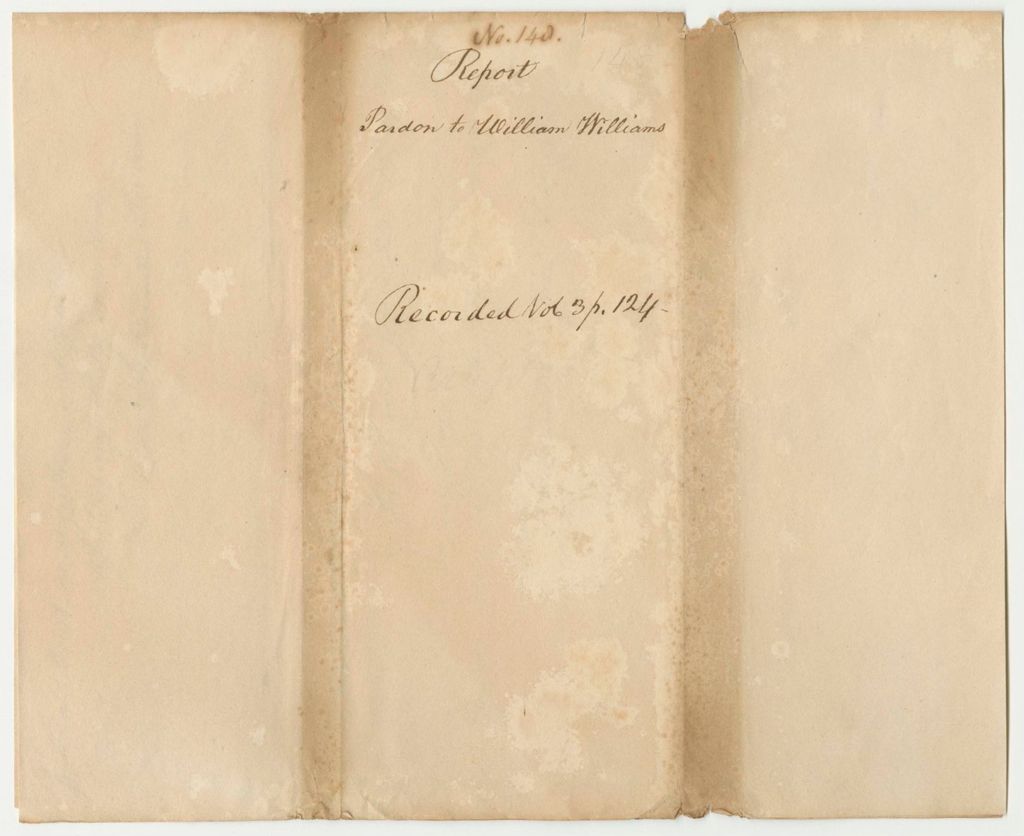 No. 140.
Report
Pardon to William Williams
Recorded Vol 3 p. 124